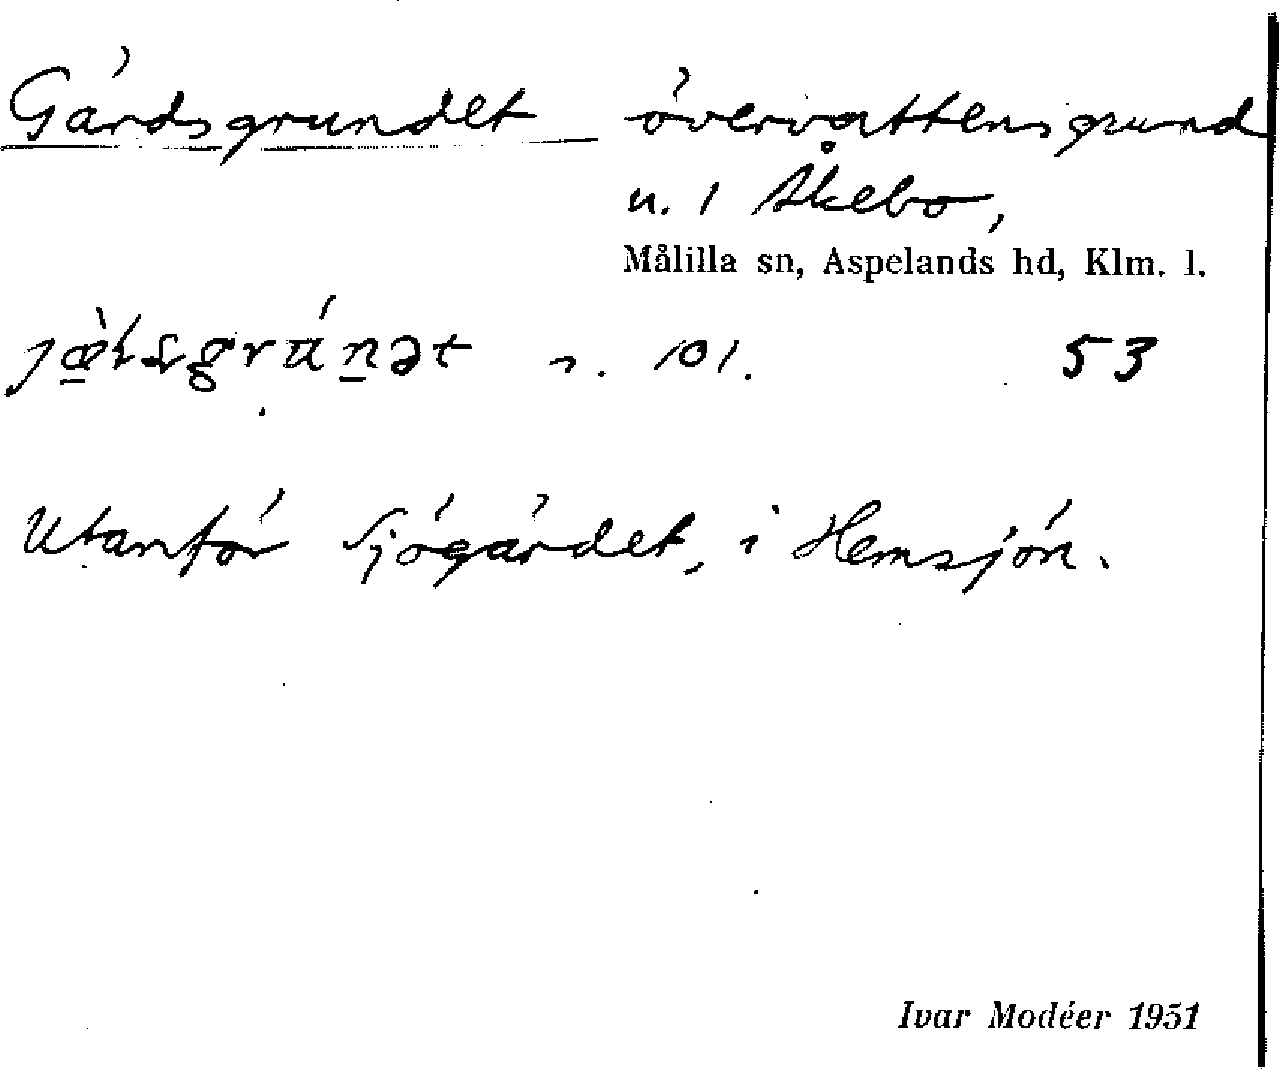 Gärdsgrundet övervattensgrund
u. 1 Åkebo,
Målilla sn, Aspelands hd, Klm. l.
n. 101. 53
Utanför Sjögärdet, i Hemsjön.
Ivar Modéer 1951